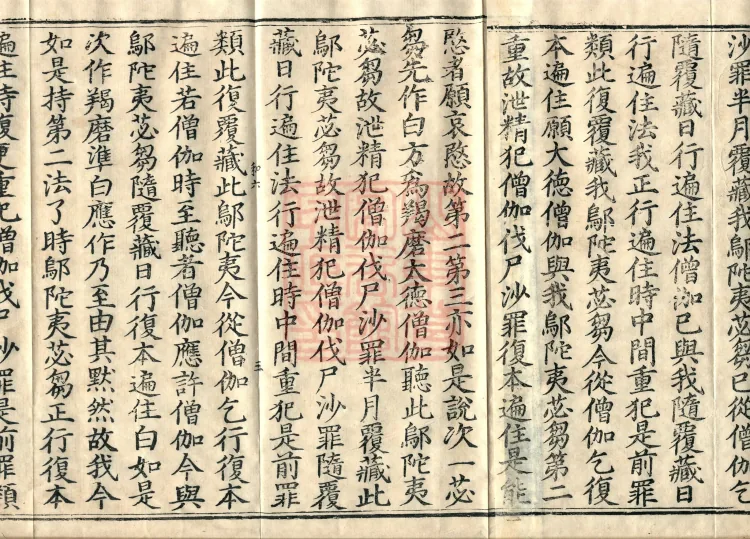 沙罪半月覆藏我鄔陀夷苾芻已從僧伽乞
隨覆藏日行遍住法僧伽已與我隨覆藏日
行遍住法我正行遍住時中間重犯是前罪
類此復覆藏我鄔陀夷苾芻今從僧伽乞復
本遍住願大德僧伽與我鄔陀夷苾芻第二
重故泄精犯僧伽伐尸沙罪復本遍住是能
愍者願哀愍故第二第三亦如是說次一苾
芻先作白方為羯磨大德僧伽聽此鄔陀夷
苾芻故泄精犯僧伽伐尸沙罪半月覆藏此
鄔陀夷苾芻故泄精犯僧伽伐尸沙罪隨覆
藏日行遍住法行遍住時中間重犯是前罪
三
類此復覆藏此鄔陀夷今從僧伽乞行復本
遍住若僧伽時至聽者僧伽應許僧伽今與
鄔陀夷苾芻隨覆藏日行復本遍住白如是
次作羯磨准白應作乃至由其默然故我今
如是持第二法了時鄔陀夷苾芻正行復本
遍住時復更重犯僧伽伐尸沙罪是前罪類